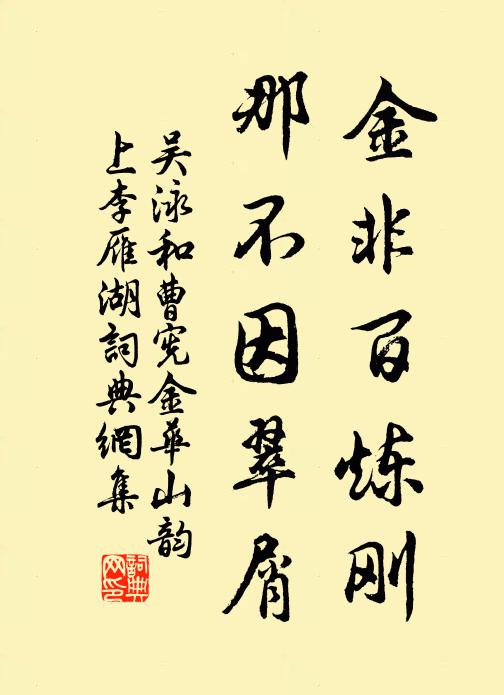 金非百炼刚
那不因翠屑
吴泳和曹宪金华山韵
上李雁湖词典網集
詞典网印